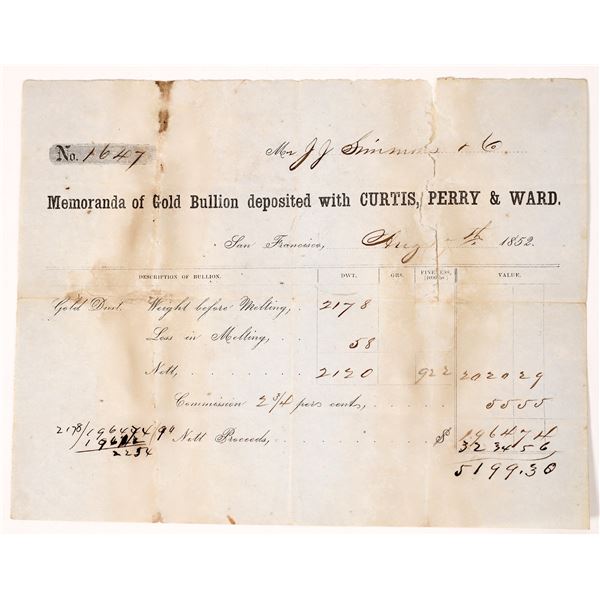 No. 1647
Mr J J Simmons & Co
Memoranda of Gold Bullion deposited with CURTIS, PERRY & WARD.
San Francisco, Aug 7th 1852.
DESCRIPTION OF BULLION. DWT. GRS. FINENESS, VALUE.
Gold Dust. Weight before Melting, 2178
Loss in Melting, 58
Nett, 2120 922 2020 29
Commission 2 3/4 per cent, 55 55
2178/196474/90 Nett Proceeds, $ 1964 74
3234 56
5199.30
2254